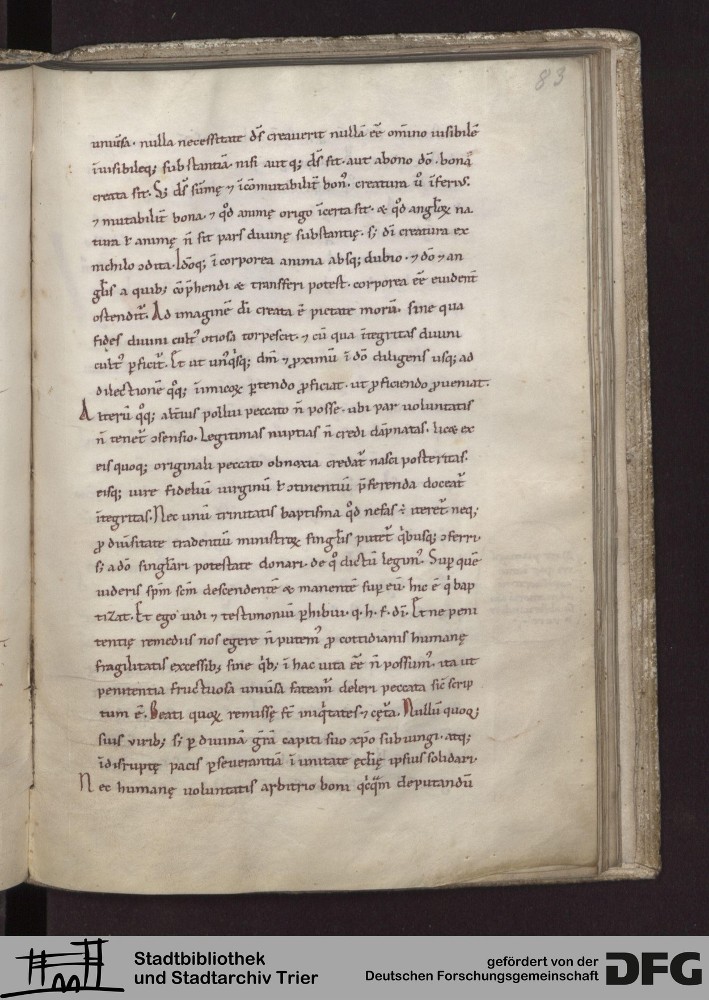 83
uniu̅sa. nulla necessitate d̅s creauerit nullā ēē om̅ino uisibilē
īuisibileq; substantiā. nisi aut q; d̅s sit. aut abono dō. bona
creata sit. S; d̅s sūmę ⁊ īcōmutabilit̅ bonꝰ. creatura u̅ īferiꝰ.
⁊ mutabilit̅ bona. ⁊ qd̅ animę origo īcerta sit. & qd̅ anglꝝ na
tura ł animę n̅ sit pars diuinę substantię. s; dī creatura ex
nichilo ↄdita. Idōq; īcorporea anima absq; dubio. ⁊ dō ⁊ an
gl̅is a quib; cōp̅hendi & transferri potest. corporea ēē euident̅
ostendit̅. Ad imaginē dī creata ē pietate morū. sine qua
fides diuini cultꝰ otiosa torpescit. ⁊ cū qua ītegritas diuini
cultꝰ ꝑficit̅. Et ut un̅qsq; dm̅ ⁊ ꝓximū ī dō diligens usq; ad
dilectionē qq; inimicoꝝ ꝑtendo ꝓficiat. ut ꝓficiendo ꝓueniat.
Alterū qq; alt̅ius pollui peccato n̅ posse. ubi par uoluntatis
n̅ tenet̅ ↄsensio. Legitimas nuptias n̅ credi dāpnatas. lic& ex
eis quoq; originali peccato obnoxia credat̅ nasci posteritas.
eisq; iure fidelium uirginū ł ↄtinentiū p̅ferenda doceat̅
ītegritas. Nec unū trinitatis baptisma qd̅ nefas ē iteret̅. neq;
ꝓ diu̅sitate tradentiū ministroꝝ singl̅is putet̅ qbusq; ↄferri.
s; adō singl̅ari potestate donari. de q̊ dictū legimꝰ. Sup quē
uideris sp̅m sc̅m descendentē & manentē sup eū. hic ē q bap
tizat. Et ego uidi ⁊ testimoniū ꝑhibui. q. h. ē. f. dī. Et ne peni
tentię remediis nos egere n̅ putemꝰ ꝓ cottidianis humanę
fragilitatis excessib; sine qb; ī hac uita ēē n̅ possumꝰ. ita ut
penitentia fructuosa uniu̅sa fateam̅ deleri peccata sic̅ scrip
tum ē. Beati quoꝝ remissę st̅ iniqtates ⁊ cęt̅a. Nullū quoq;
suis uirib; s; ꝑ diuinā gr̅am capiti suo xp̅o subiungi. atq;
īdisruptę pacis ꝑseuerantiā ī unitate ęcl̅ię ipsius solidari.
Nec humanę uoluntatis arbitrio boni qcqm̅ deputandū
Stadtbibliothek
und Stadtarchiv Trier
gefördert von der
Deutschen Forschungsgemeinschaft
DFG